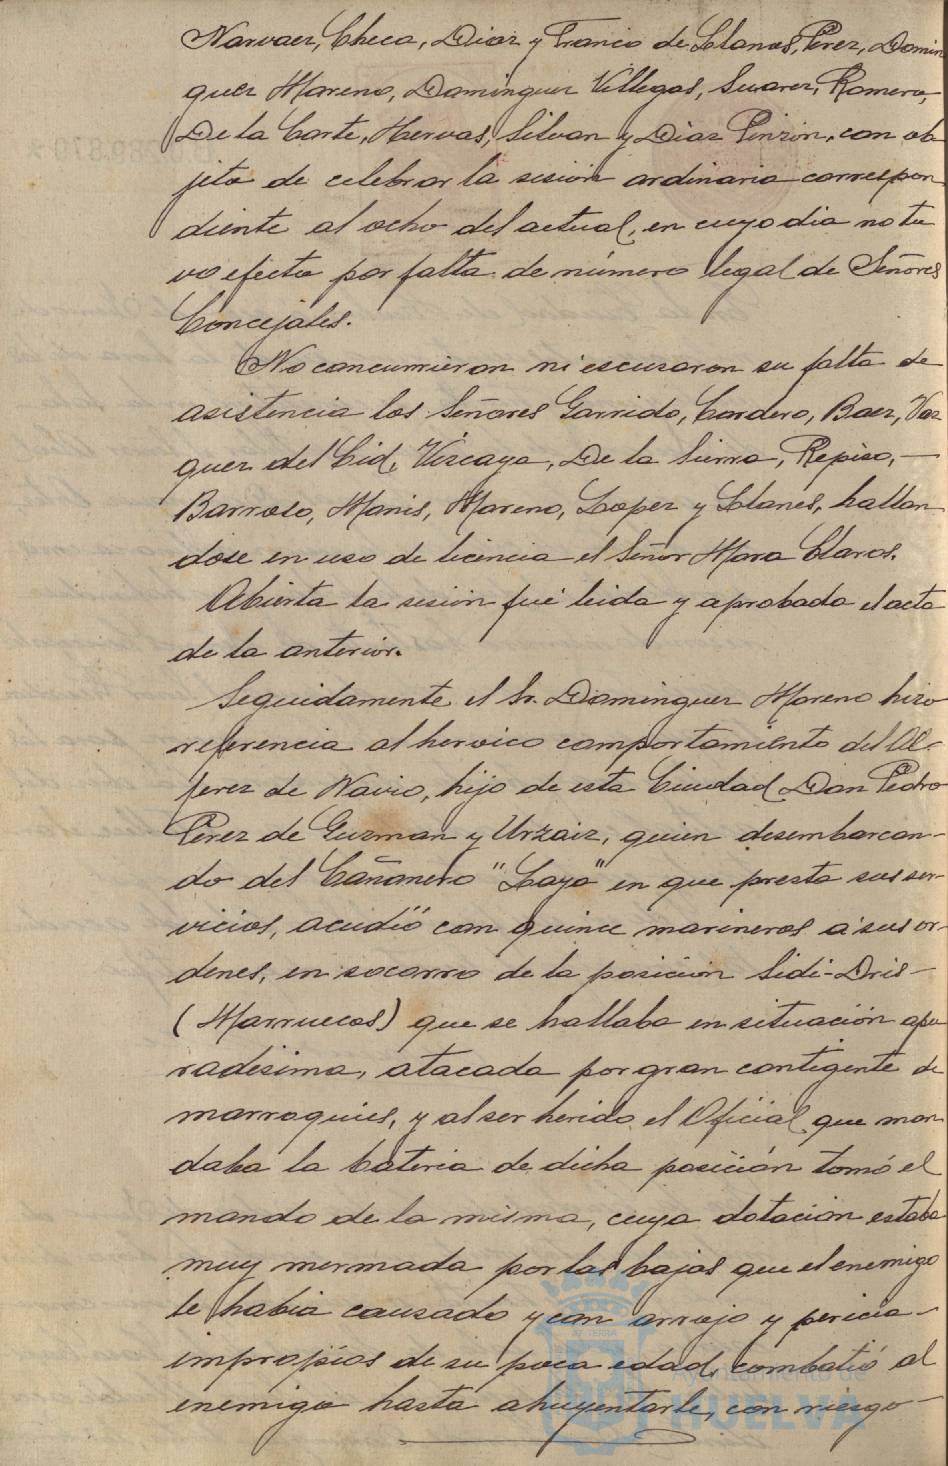 Narvaez, Checa, Diaz y Franco de Llanos, Perez, Domin
guez Moreno, Dominguez Villegas, Suarez, Romero,
De la Corte, Hervas, Silvan y Diaz Pinzón, con ob
jeto de celebrar la sesión ordinaria correspon
diente al ocho del actual, en cuyo dia no tu
vo efecto por falta de número legal de Señores
Concejales.
No concurrieron ni escusaron su falta de
asistencia los Señores Garrido, Cordero, Baez, Vaz
quez del Cid, Vizcaya, De la Sierra, Repiso, —
Barroso, Manis, Moreno, Lopez y Llanes, hallan
dose en uso de licencia el Señor Mora Claros.
Abierta la sesión fué leida y aprobada el acta
de la anterior.
Seguidamente el Sr. Dominguez Moreno hizo
referencia al heroico comportamiento del Al-
ferez de Navio, hijo de esta Ciudad Don Pedro
Perez de Guzman y Urzaiz, quien desembarcan-
do del Cañonero "Laya" en que presta sus ser-
vicios, acudió con quince marineros á sus or-
denes, en socorro de la posición Sidi-Dris —
(Marruecos) que se hallaba en situación apu
radisima, atacada por gran contigente de
marroquies, y al ser herido el Oficial que man
daba la bateria de dicha posición tomó el
mando de la misma, cuya dotacion estaba
muy mermada por las bajas que el enemigo
le habia causado y con arrojo y pericia —
impropios de su poca edad, combatió al
enemigo hasta ahuyentarle, con riesgo —
Ayuntamiento de
HUELVA